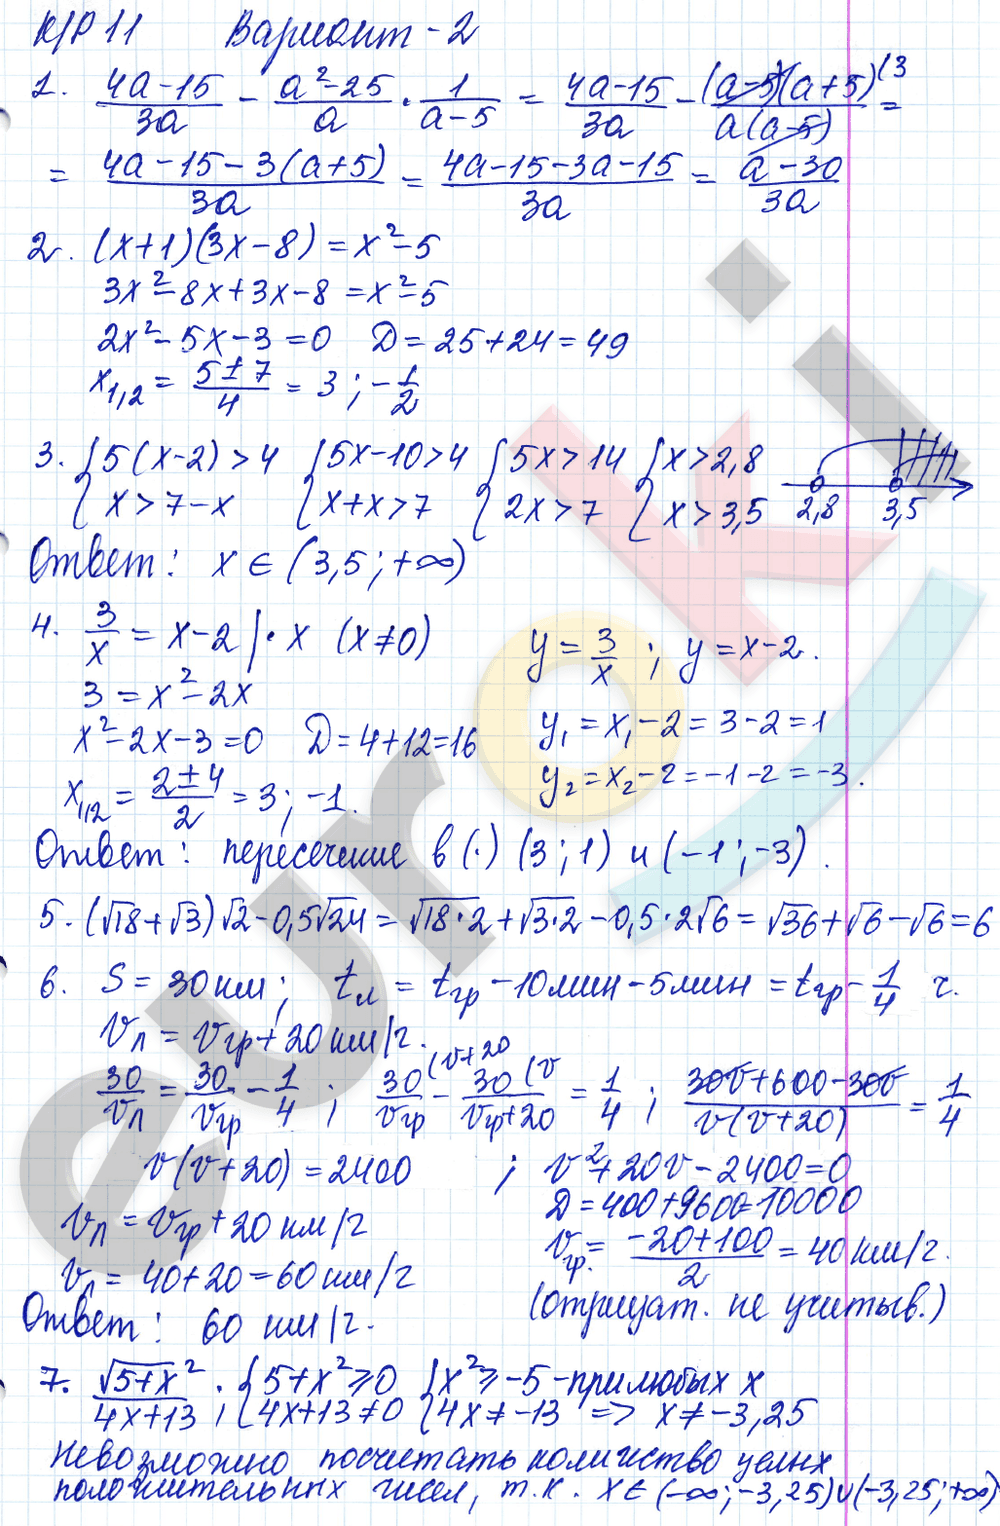 К/Р 11 Вариант - 2
1. (4a-15)/(3a) - (a²-25)/a · 1/(a-5) = (4a-15)/(3a) - ((a-5)(a+5)⁽³)/(a(a-5)) =
= (4a-15-3(a+5))/(3a) = (4a-15-3a-15)/(3a) = (a-30)/(3a)
2. (x+1)(3x-8) = x²-5
3x²-8x+3x-8 = x²-5
2x²-5x-3=0 D=25+24=49
x₁,₂ = (5±7)/4 = 3; -1/2
3. {5(x-2)>4 {5x-10>4 {5x>14 {x>2,8
x>7-x x+x>7 2x>7 x>3,5 2,8 3,5
Ответ: x∈(3,5;+∞)
4. 3/x = x-2 |·x (x≠0) y=3/x; y=x-2.
3=x²-2x
x²-2x-3=0 D=4+12=16 y₁=x₁-2=3-2=1
x₁,₂ = (2±4)/2 = 3; -1. y₂=x₂-2=-1-2=-3.
Ответ: пересечение в (·) (3;1) и (-1;-3).
5. (√18+√3)√2-0,5√24 = √18·2+√3·2-0,5·2√6 = √36+√6-√6=6
6. S=30км; tл = tгр-10мин-5мин = tгр-1/4 ч.
vл = vгр+20км/ч.
30/vл = 30/vгр - 1/4; 30/vгр ⁽v+20 - 30/(vгр+20) ⁽v = 1/4; (30v+600-30v)/(v(v+20)) = 1/4
v(v+20)=2400; v²+20v-2400=0
D=400+9600=10000
vл = vгр+20 км/ч vгр. = (-20+100)/2 = 40 км/ч.
vл = 40+20=60 км/ч
(отрицат. не учитыв.)
Ответ: 60 км/ч.
7. √5+x²/(4x+13); {5+x²≥0 {x²≥-5 - при любых x
4x+13≠0 4x≠-13 => x≠-3,25
Невозможно посчитать количество целых
положительных чисел, т.к. x∈(-∞;-3,25)∪(-3,25;+∞)
euroki